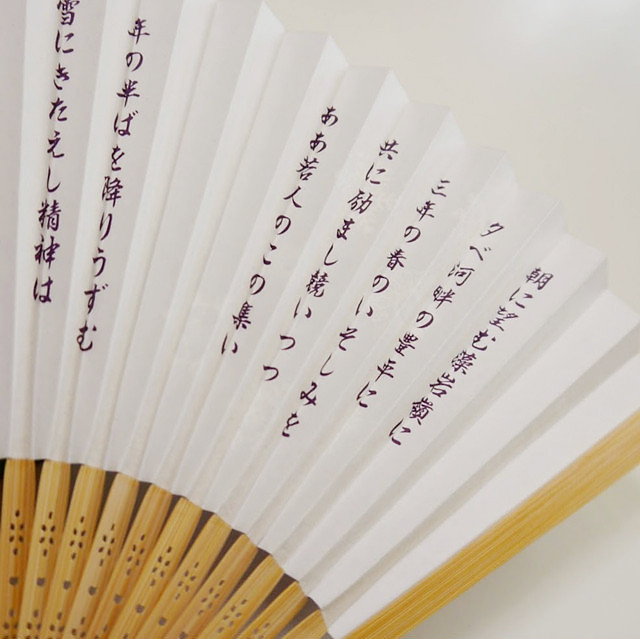 朝に望む藻岩嶺に
夕べ河畔の豊平に
三年の春のいそしみを
共に励まし競いつつ
ああ若人のこの集い
年の半ばを降りうずむ
雪にきたえし精神は